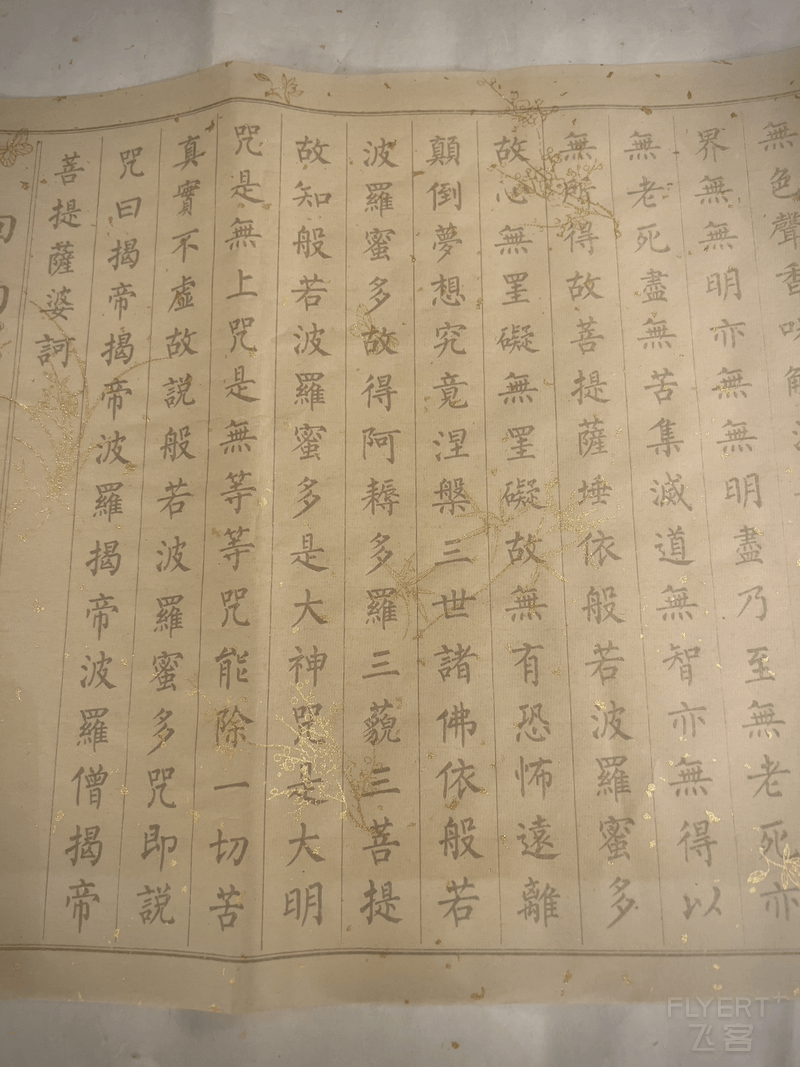 無色聲香味
界無無明亦無無明盡乃至無老死亦
無老死盡無苦集滅道無智亦無得以
無所得故菩提薩埵依般若波羅蜜多
故心無罣礙無罣礙故無有恐怖遠離
顛倒夢想究竟涅槃三世諸佛依般若
波羅蜜多故得阿耨多羅三藐三菩提
故知般若波羅蜜多是大神咒是大明
咒是無上咒是無等等咒能除一切苦
真實不虛故說般若波羅蜜多咒即說
咒曰揭帝揭帝波羅揭帝波羅僧揭帝
菩提薩婆訶
FLYERT
飞客